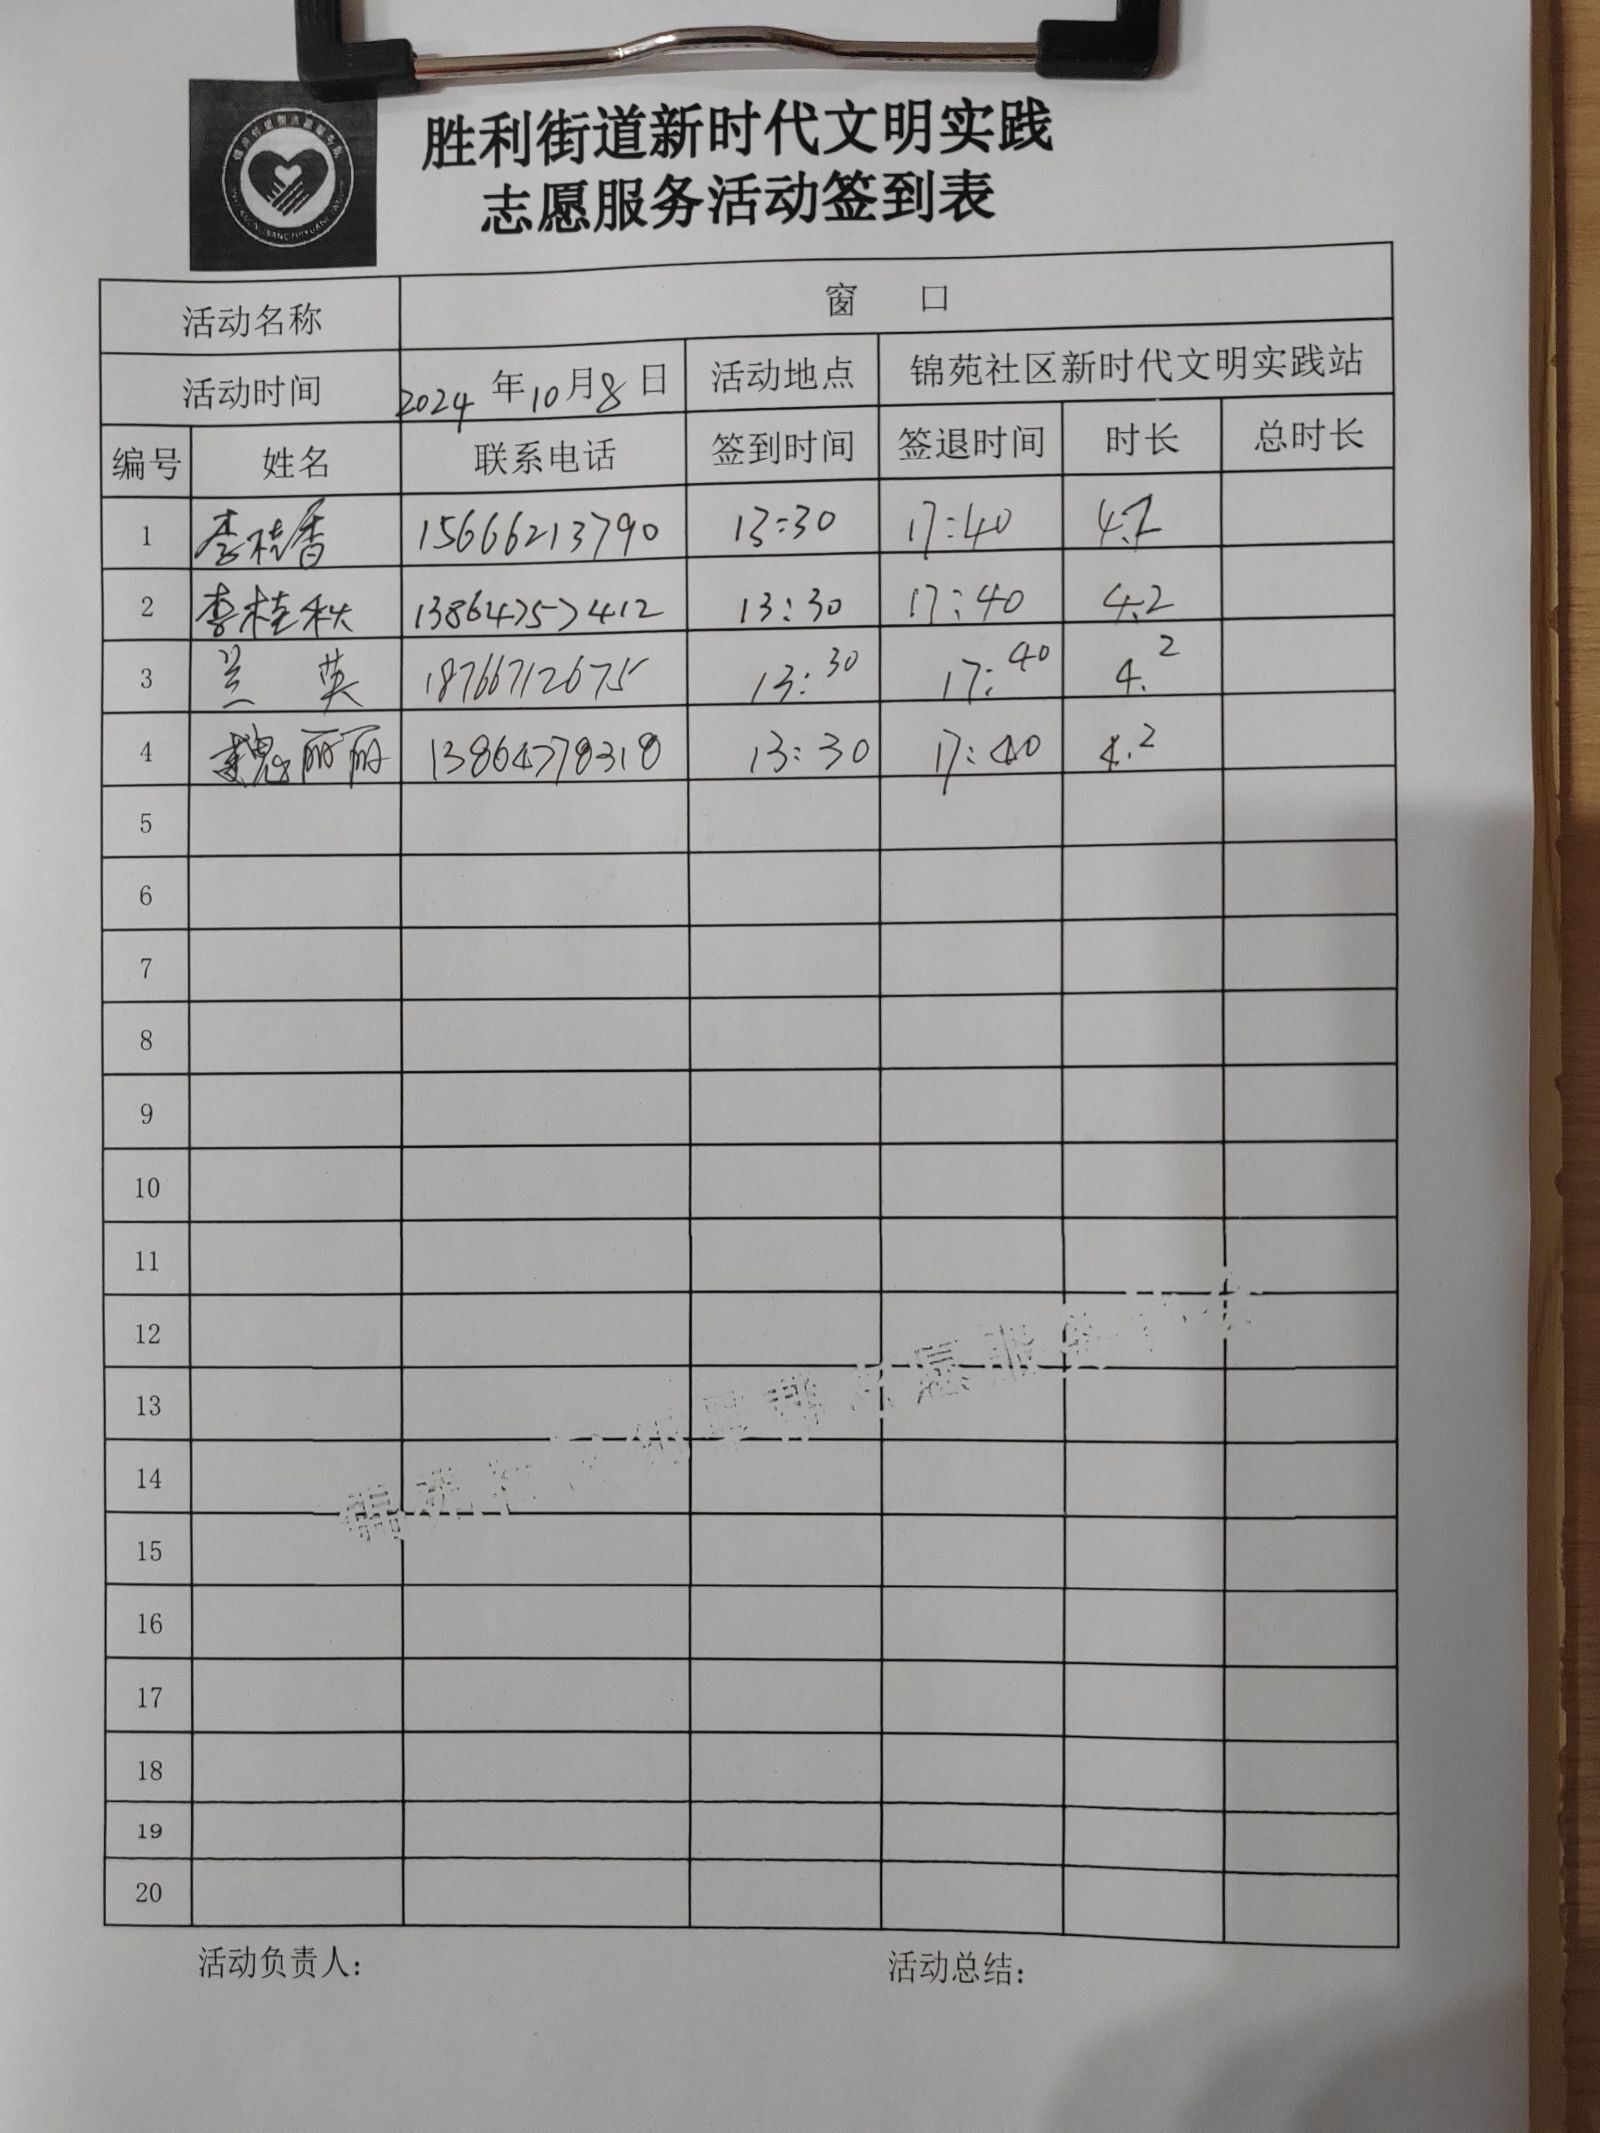 胜利街道新时代文明实践
志愿服务活动签到表
活动名称 窗 口
活动时间 2024年10月8日 活动地点 锦苑社区新时代文明实践站
编号 姓名 联系电话 签到时间 签退时间 时长 总时长
1 李桂香 15666213790 13:30 17:40 4.2
2 李桂秋 13864757412 13:30 17:40 4.2
3 兰英 18766712675 13:30 17:40 4.2
4 魏丽丽 13864778318 13:30 17:40 4.2
5
6
7
8
9
10
11
12
13
14
15
16
17
18
19
20
活动负责人: 活动总结: